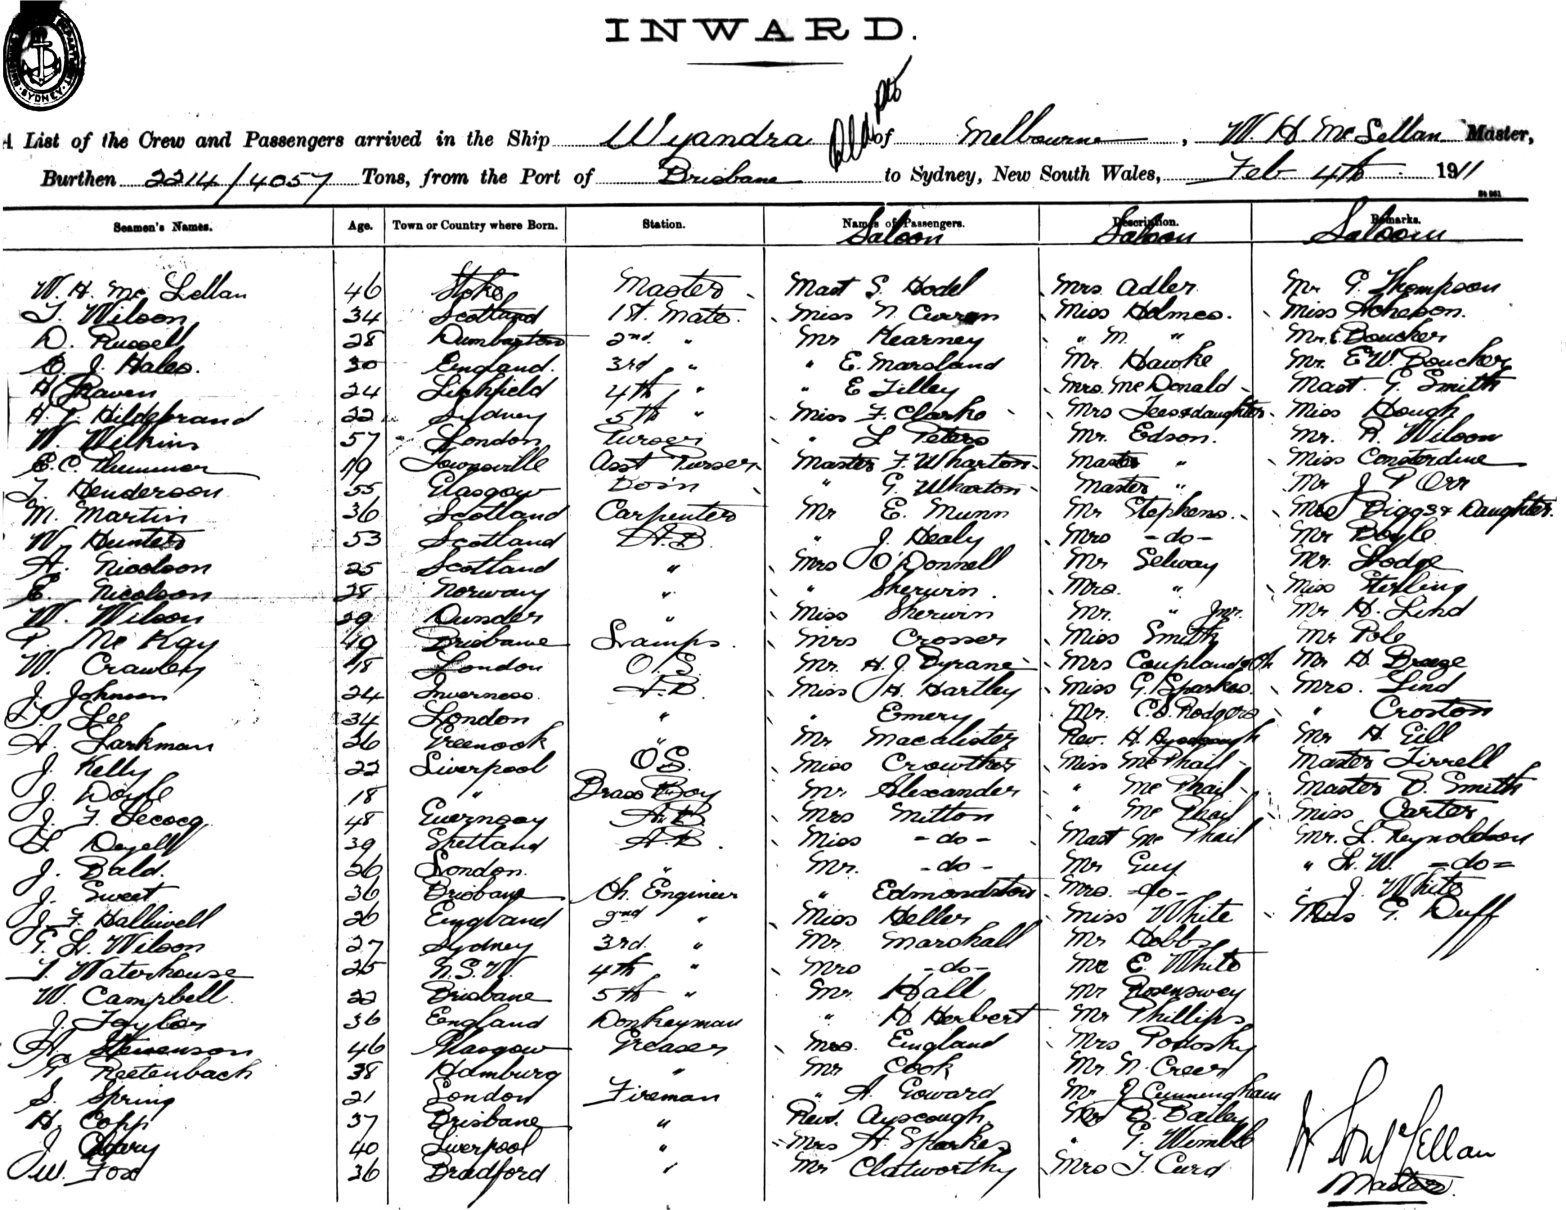 INWARD.
SYDNEY
A List of the Crew and Passengers arrived in the Ship Wyandra of Melbourne, W. H. McLellan Master,
Burthen 2214/4057 Tons, from the Port of Brisbane to Sydney, New South Wales, Feb 4th 1911
Seamen's Names. Age. Town or Country where Born. Station. Names of Passengers. Description. Remarks.
Saloon Saloon Saloon
W. H. McLellan 46 Stoke Master Mast S. Hodel Mrs Adler Mr G. Thompson
T. Wilson 34 Scotland 1st Mate Miss N. Curran Miss Holmes Miss Acheson
D. Russell 28 Dumbarton 2nd " Mr Kearney " M " Mr E Boucher
O. J. Hales 30 England 3rd " " E. Marsland Mr Hawke Mr. E W Boucher
H. Raven 24 Lichfield 4th " " E Tilley Mrs McDonald Mast G. Smith
H. G. Hildebrand 22 Sydney 5th " Miss F. Clarke Mrs Lees & daughter Miss Hough
W. Wilkins 57 London Purser " L Peters Mr. Edson. Mr. R. Wilson
E. C. Plummer 19 Townsville Asst Purser Master F. Wharton Master " Miss Consterdine
T. Henderson 55 Glasgow Bo'n " G. Wharton Master " Mr J P Orr
M. Martin 36 Scotland Carpenter Mr E. Munn Mr Stephens Biggs & Daughter
W. Hunter 53 Scotland A.B. " J. Healy Mrs - do - Mr Boyle
A. Nicolson 25 Scotland " Mrs O'Donnell Mr Selway Mr. Hodge
E. Nicolson 28 Norway " " Sherwin Mrs. " Miss Sterling
W. Wilson 29 Dundee " Miss Sherwin Mr. " Jnr. Mr H. Lind
P. McKay 49 Brisbane Lamps. Mrs Crosser Miss Smith Mr Pole
W. Crawley 18 London O.S. Mr. H. J. Byrane Mrs Coupland & Ch Mr H. Breeze
J. Johnson 24 Inverness A.B. Miss H. Hartley Miss G. Sparkes Mrs. Lind
Lee 34 London " " Emery Mr. C. S. Rodgers " Croston
A. Larkman 26 Greenock " Mr Macalister Rev. H. Mr H. Gill
J. Kelly 22 Liverpool O.S. Miss Crowther Miss McPhail Master Tirrell
J. Doyle 18 " Brass Boy Mr Alexander " McPhail Master D. Smith
J. F. Lecocq 48 Guernsey A.B. Mrs Mitton " McPhail Miss Carter
Deyell 39 Shetland A.B. Miss - do - Mast McPhail Mr. L. Reynoldson
J. Bald. 26 London. " Mr. - do - Mr Guy " L. W. - do -
J. Sweet 36 Brisbane Ch. Engineer " Edmondston Mrs. - do - " J. White
J. F. Halliwell 26 England 2nd " Miss Heller Miss White G. Duff
G. L. Wilson 27 Sydney 3rd " Mr Marshall Mr Hobbs
T. Waterhouse 25 N.S.W. 4th " Mrs - do - Mr E. White
W. Campbell. 22 Brisbane 5th " Mr. Hall Mr Rosenswey
J. Taylor 36 England Donkeyman " H Herbert Mr Phillips
A. Stevenson 46 Glasgow Greaser Mrs. England Mrs Pokosky
G. Reetenbach 38 Hamburg " Mr Cook Mr. N. Creer
S. Spring 21 London Fireman " A. Goward Mr J Cunningham
H. Copp 37 Brisbane " Revd. Ayscough. Mr B. Bailey
J. Cleary 40 Liverpool " Mrs H. Sparkes " G. Wimble
W. Fox 36 Bradford " Mr Clatworthy Mrs T. Curd
W H McLellan
Master